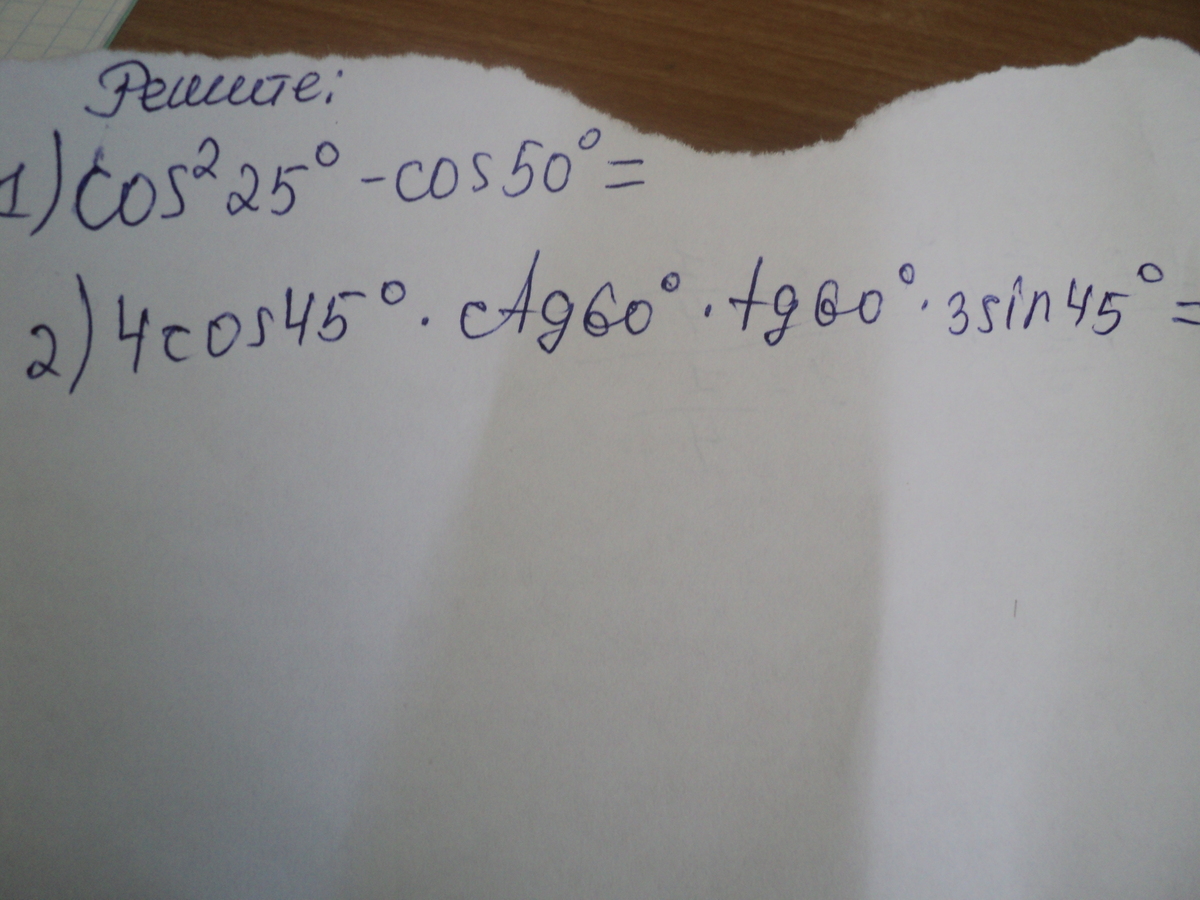 Решите:
1) cos² 25° - cos 50° =
2) 4cos45° · ctg60° · tg60° · 3sin45° =